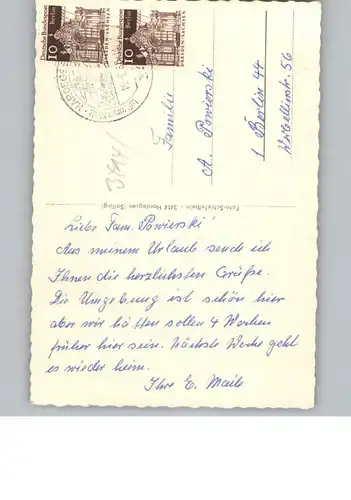 Deutsche Bundespost Berlin
10
DRESDEN-SACHSEN
Deutsche Bundespost Berlin
10
DRESDEN-SACHSEN
Familie
A. Powierski
1 Berlin 44
56
3414 Hardegsen (Solling)
Liebe Fam. Powierski!
Aus meinem Urlaub sende ich
Ihnen die herzlichsten Grüße.
Die Umgebung ist schön hier
aber wir hätten sollen 4 Wochen
früher hier sein. Nächste Woche geht
es wieder heim.
Ihre E. Maile